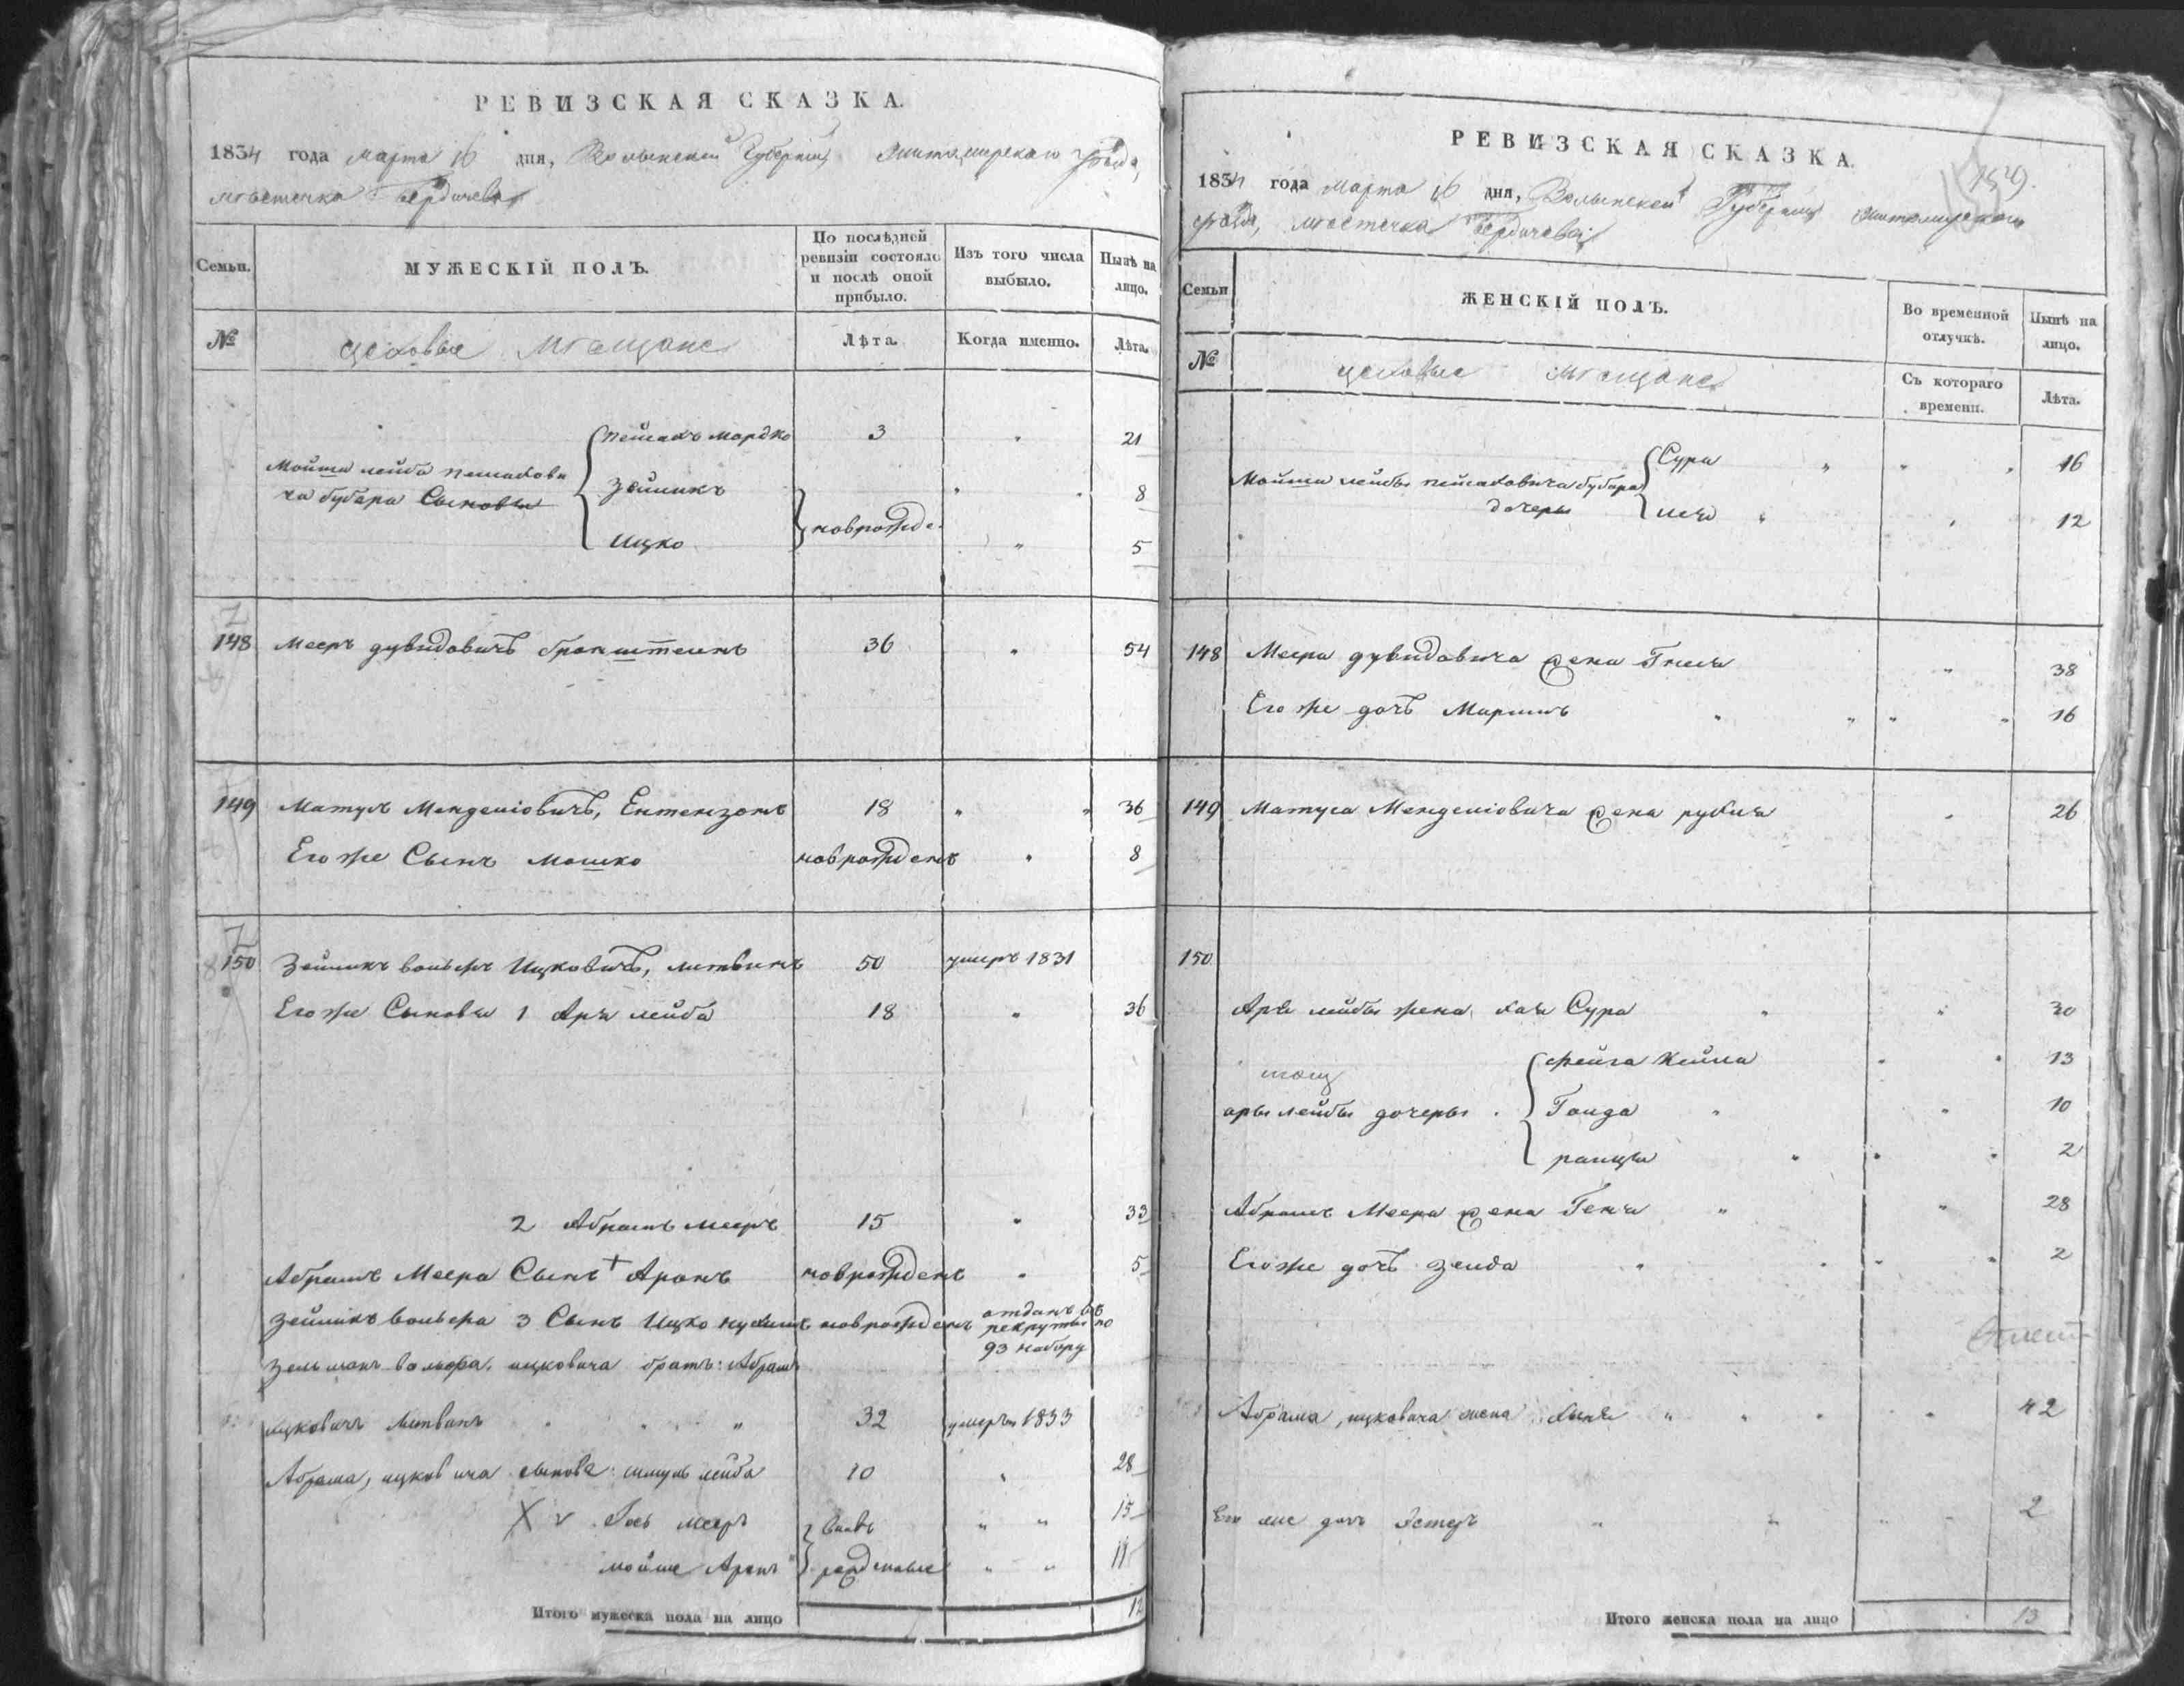 РЕВИЗСКАЯ СКАЗКА.
1834 года марта 16 дня, Волынской Губернии Житомирского уезда,
местечка Бердичева
Семьи.
МУЖЕСКІЙ ПОЛЪ.
По послѣдней
ревизіи состояло
и послѣ оной
прибыло.
Изъ того числа
выбыло.
Нынѣ на
лицо.
№
цеховые мещане
Лѣта.
Когда именно.
Лѣта.
Пейсахъ Мордко 3 " 21
Мойши лейбы пейсахови
ча бубера Сыновья
Зейликъ " " 8
новрожде.
Ицко " 5
148 Мееръ дувидовичъ бронштейнъ 36 " 54
149 Матусъ Менделіовичъ, Ентензонъ 18 " " 36
Его же Сынъ мошко новрожденъ " 8
150 Зейликъ вольфъ Ицковичъ, литвинъ 50 умеръ 1831
Его же Сыновья 1 Арья лейба 18 " 36
2 Абрамъ мееръ 15 " 33
Абрамъ Меера Сынъ + Аронъ новрожденъ " 5
Зейликъ вольфа 3 Сынъ Ицко нухимъ новрожденъ отданъ въ
рекруты по
93 набору
Зельман вольфа. ицковича братъ: Абрамъ
ицковичъ Литвинъ " " " 32 умеръ 1833
Абрама, ицковича сыновя: шмуль лейба 10 " 28
X Іось мееръ } вновь " " 15
мойше Аронъ " } рожденые " " 11
Итого мужеска пола на лицо 12
РЕВИЗСКАЯ СКАЗКА.
159.
1834 года марта 16 дня, Волынской Губернии Житомирского
уезда, местечка Бердичева
Семьи
ЖЕНСКІЙ ПОЛЪ.
Во временной
отлучкѣ.
Нынѣ на
лицо.
№
цеховые мещане
Съ котораго
времени.
Лѣта.
Сура " " " 16
Мойши лейбы пейсаховича бубера
дочеры
" " 12
148 Меера дувидовича жена Гнеся " 38
Его же дочь Мариамъ " " " " 16
149 Матуса Менделіовича жена рухля " 26
150
Арья лейбы жена хая Сура " " 30
фейга Кейла " " 13
ары лейбы дочеры Гольда " " 10
" " " 2
Абрамъ Меера жена Геня " " 28
Его же дочь Зелда " " " " 2
Абрама, ицковича жена хиня " " " " 42
Его же дочь Эстеръ " " " " 2
Итого женска пола на лицо 13